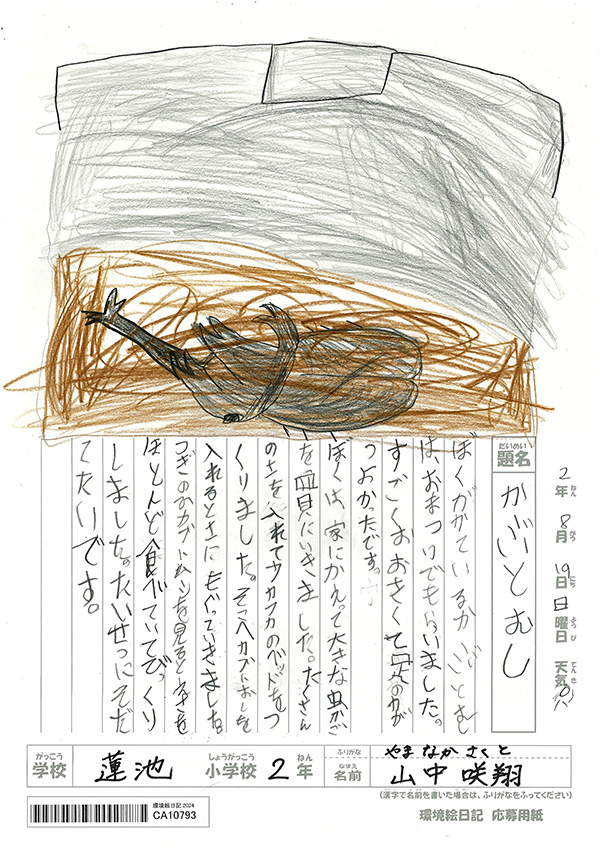 2年 8月 19日 日曜日 天気
ねん がつ にち ようび てんき
だいめい
題名 かぶとむし
ぼくがかているかぶとむ
は、おまつりでもらいました。
すごくおおきくて
つよかったです。
ぼくは、家にかえって大きな虫かご
を買にいきました。たくさん
の土を入れてフカフカのベッドをつ
くりました。そこへカブトむしを
入れるときにもぐっていきました。
つぎの日カブトムシを見ると
ほとんど食べていてびっくり
しました。たいせつにそだ
てたいです。
がっこう しょうがっこう ねん ふりがな やまなか さくと
学校 蓮池 小学校 2年 なまえ 名前 山中 咲翔
(漢字で名前を書いた場合は、ふりがなをふってください)
環境絵日記 2024
CA10793
環境絵日記 応募用紙